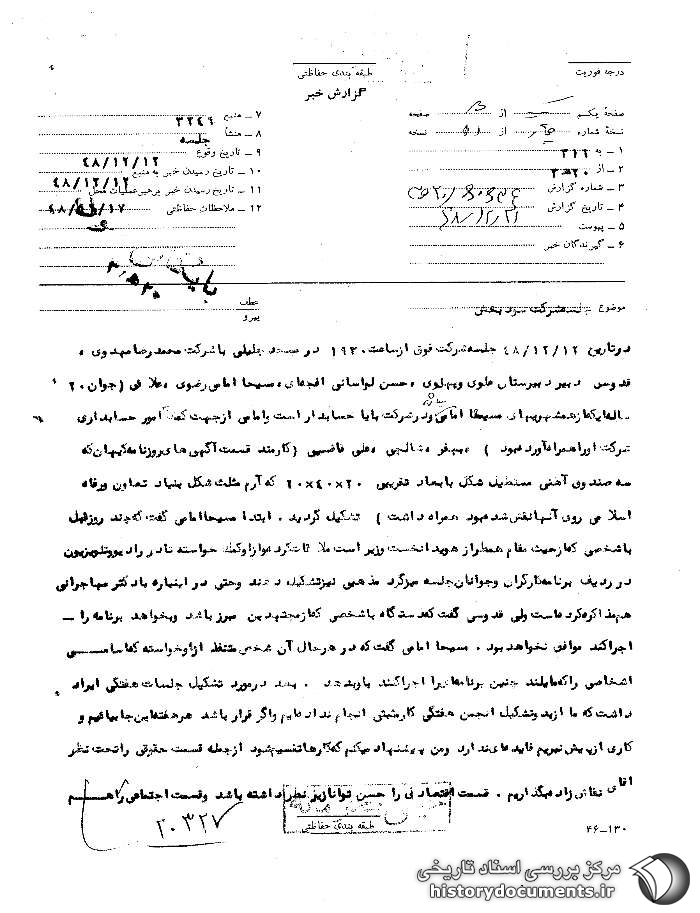 درجه فوریت
طبقه بندی حفاظتی
گزارش خبر
صفحهٔ یکم از صفحه
نسخهٔ شماره از نسخه
۱ ـ به ۳۱۲
۲ ـ از ۲۰ ه ۳
۳ ـ شماره گزارش
۴ ـ تاریخ گزارش ۴۸/۱۲/۲۱
۵ ـ پیوست
۶ ـ گیرندگان خبر
۷ ـ منبع ۳۲۴۹
۸ ـ منشأ جلسه
۹ ـ تاریخ وقوع ۴۸/۱۲/۱۲
۱۰ ـ تاریخ رسیدن خبر به منبع ۴۸/۱۲/۱۲
۱۱ ـ تاریخ رسیدن خبر برهبر عملیات محل ۴۸/۱۲/۱۷
۱۲ ـ ملاحظات حفاظتی
موضوع جلسه شرکت سود بخش
عطف
پیرو
در تاریخ ۴۸/۱۲/۱۲ جلسه شرکت فوق از ساعت ۱۹۳۰ در مسجد جلیلی با شرکت محمد رضا مهدوی ،
قدوسی دبیر دبیرستان علوی و پهلوی ، حسن لواسانی افجه‌ای ، مسیحا امامی رضوی ، علاقی (جوان ۲۰
ساله‌ایکه از مسیحا امامی و در شرکت بایا حسابدار است و امامی از جهت کمک امور حسابداری
شرکت او را همراه آورده بود ) ، سپهر ، شالچی ، علی قاضیی (کارمند قسمت آگهی های روزنامه کیهان که
سه صندوق آهنی مستطیل شکل بابعاد تقریبی ۲۰×۴۰×۲۰ که آرم مثلث شکل بنیاد تعاون و رفاه
اسلامی روی آنها نقش شده بود همراه داشت ) تشکیل گردید . ابتدا مسیحا امامی گفت که چند روز قبل
با شخصی که از حیث مقام همطراز هویدا نخست وزیر است ملاقات کرده و از او کمک خواسته تا در رادیو و تلویزیون
در ردیف برنامه کارگران و جوانان جلسه میزگرد مذهبی نیز تشکیل دهند و حتی در اینباره با دکتر مهاجرانی
هم مذاکره کرده است ولی قدوسی گفت که دستگاه با شخصی که از مجتهدین مبرز باشد و بخواهد برنامه را
اجرا کند موافق نخواهد بود . مسیحا امامی گفت که در هر حال آن شخص متنفذ از او خواسته که اسامی
اشخاصی را که مایلند چنین برنامه‌ای را اجرا کنند باو بدهد . بعد در مورد تشکیل جلسات هفتگی ایراد
داشت که ما از بدو تشکیل انجمن هفتگی کار مثبتی انجام نداده‌ایم و اگر قرار باشد هر هفته این جا بیائیم و
کاری از پیش نبریم فایده‌ای ندارد و من پیشنهاد میکنم که کارها تقسیم شود از جمله قسمت حقوقی را تحت نظر
آقای نقاش زاده میگذاریم . قسمت اقتصادی را حسن توانا زیر نظر داشته باشد و قسمت اجتماعی را هم
طبقه بندی حفاظتی
۲۰۳۲۷
۴۶-۱۳۰
مرکز بررسی اسناد تاریخی
historydocuments.ir